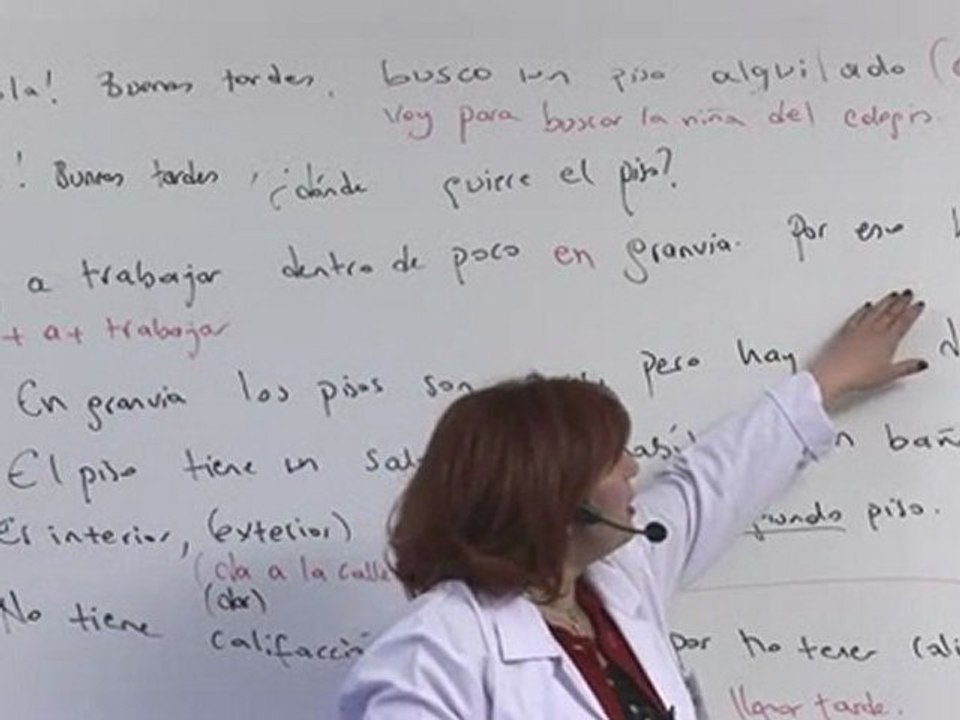 la! Buenas tardes, busco un piso alquilado (
Voy para buscar la niña del colegio.
! Buenas tardes, ¿dónde quiere el piso?
a trabajar dentro de poco en granvia. Por eso
+ a + trabajar
En granvia los pisos son pero hay
El piso tiene un bañ
Es interior, (exterior) piso.
(da a la calle
(dar)
No tiene califacció por no tener cali
llegar tarde.